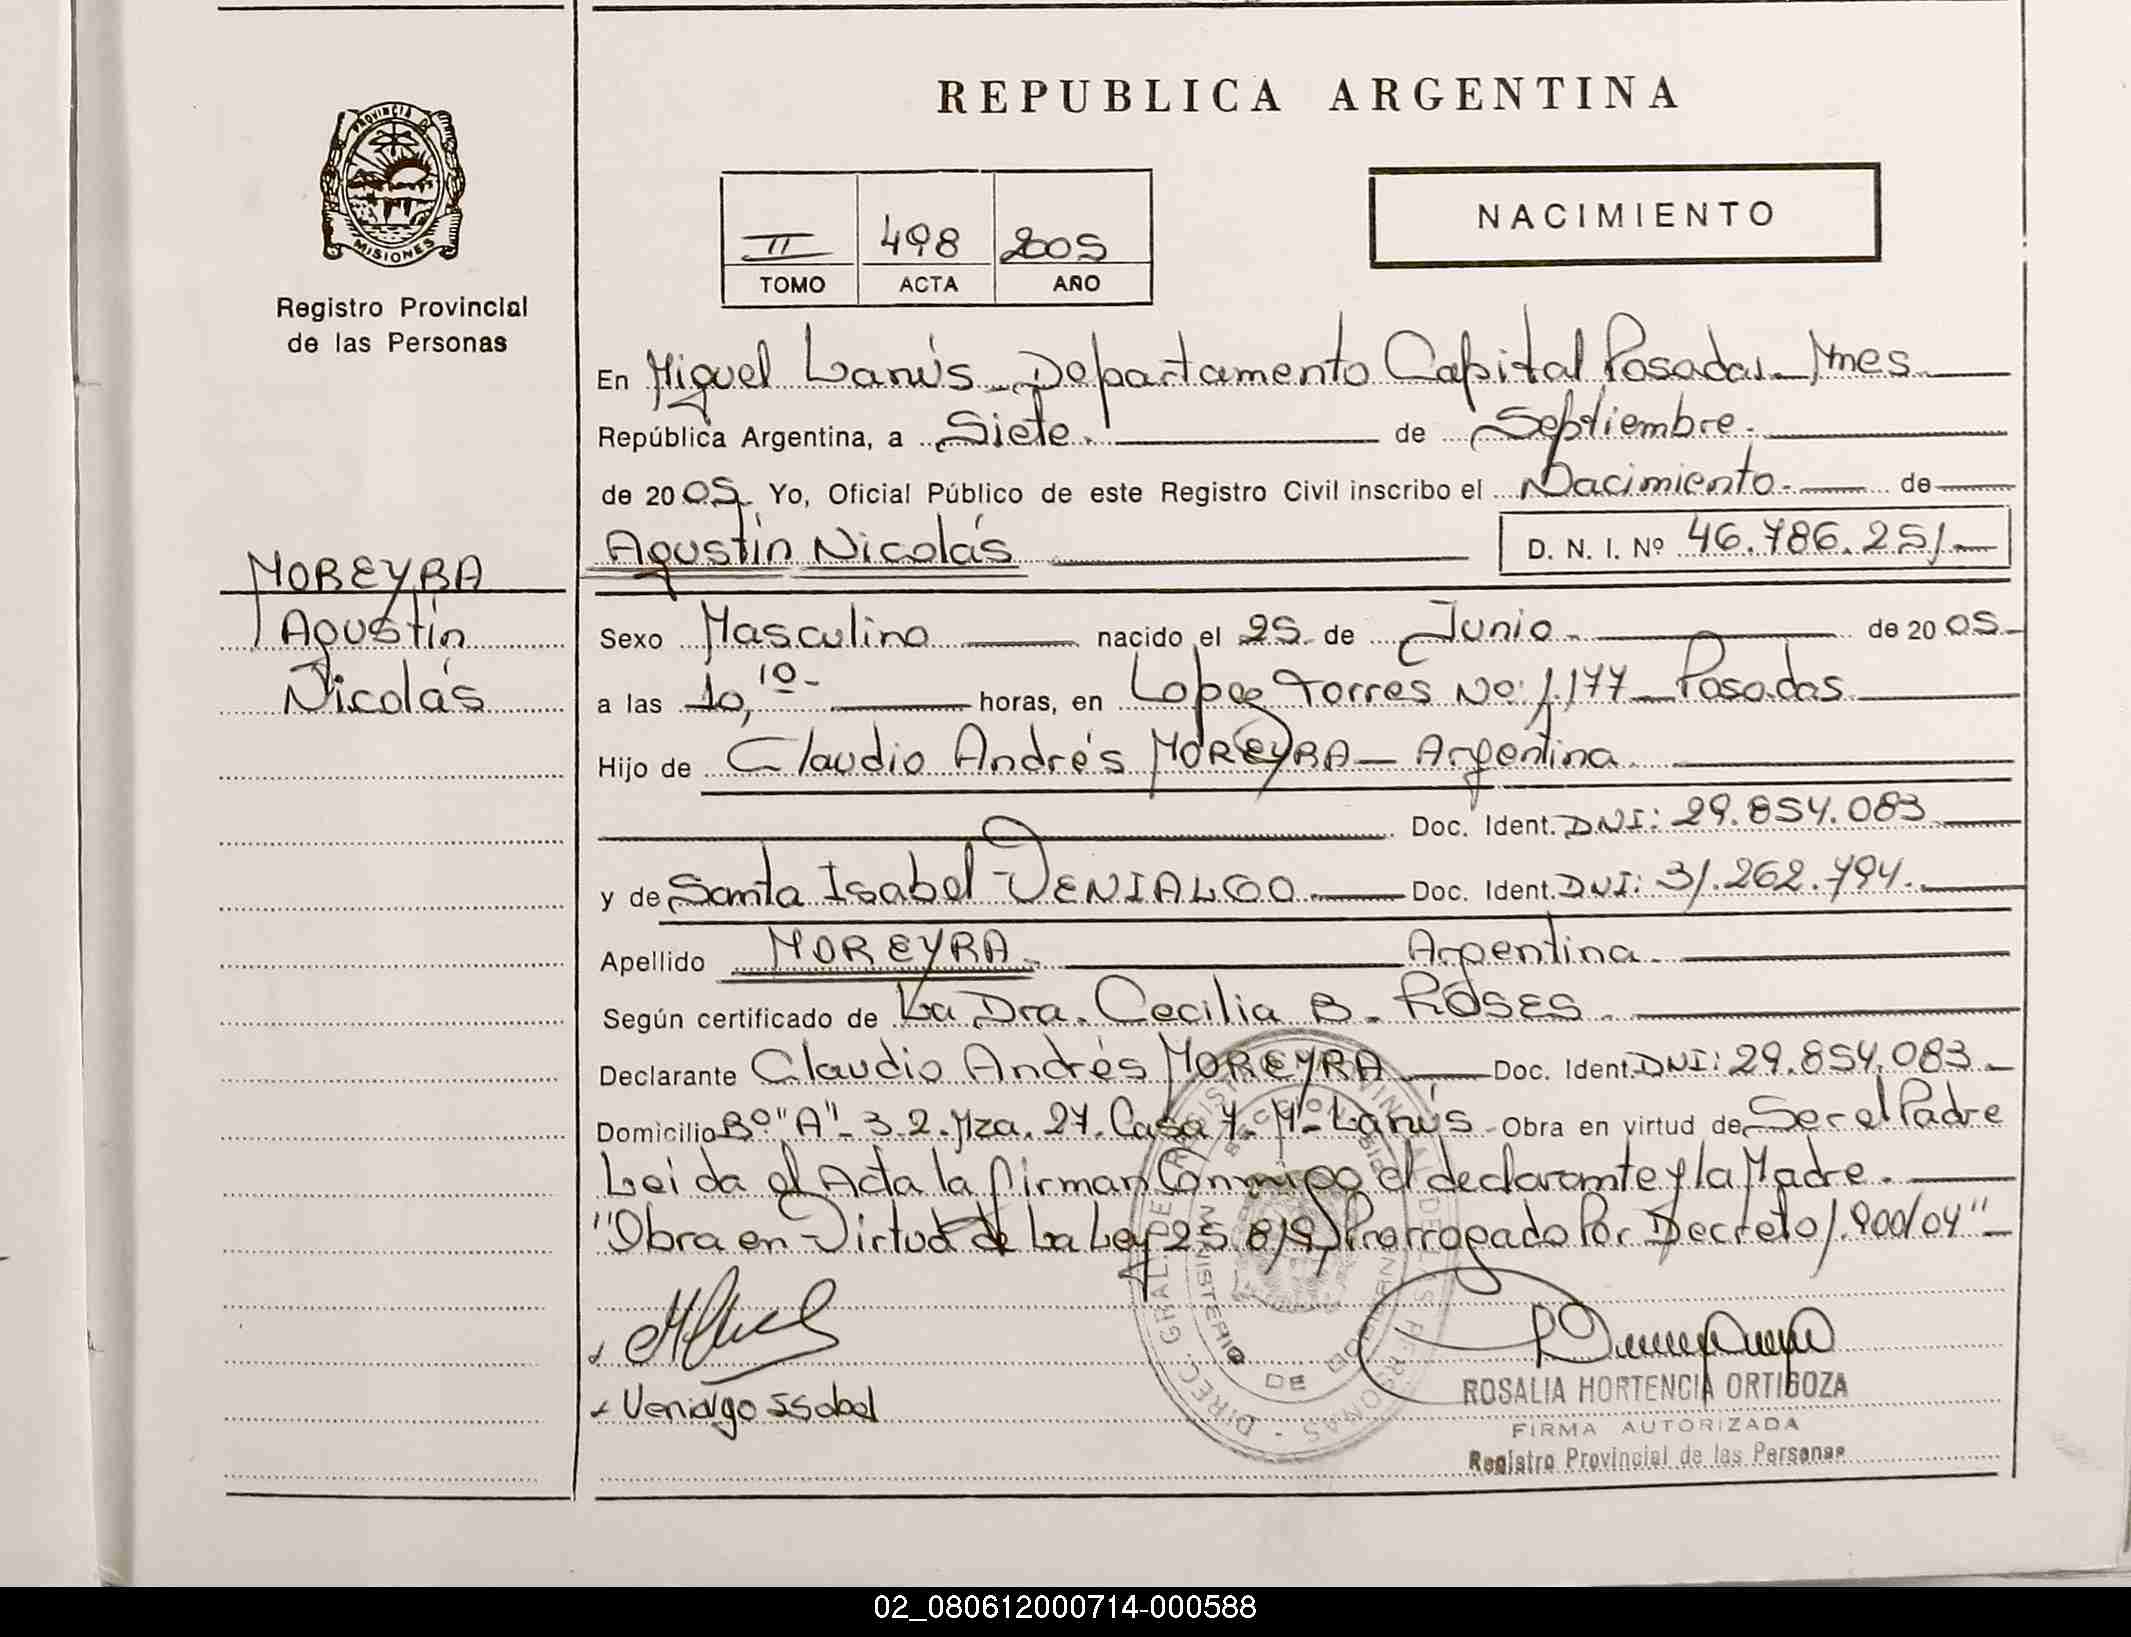 REPUBLICA ARGENTINA
PROVINCIA DE MISIONES
Registro Provincial
de las Personas
NACIMIENTO
II 498 2005
TOMO ACTA AÑO
En Miguel Lanús - Departamento Capital Posadas - Mnes
República Argentina, a Siete. de Septiembre.
de 2005. Yo, Oficial Público de este Registro Civil inscribo el Nacimiento - de
Agustín Nicolás D. N. I. Nº 46.786.251 -
MOREYRA
Agustín
Nicolás
Sexo Masculino nacido el 25 de Junio - de 2005 -
a las 10,10 - horas, en Lopez Torres No: 1.177 - Posadas
Hijo de Claudio Andrés MOREYRA - Argentina
Doc. Ident. DNI: 29.854.083
y de Santa Isabel VENIALGO Doc. Ident. DNI: 31.262.794.
Apellido MOREYRA - Argentina
Según certificado de La Dra. Cecilia B. ROSES.
Declarante Claudio Andrés MOREYRA Doc. Ident. DNI: 29.854.083 -
Domicilio Bº "A" - 3.2. Mza. 27. Casa 7. M. Lanús - Obra en virtud de Ser el Padre
Leida el Acta la firman Conmigo el declarante y la Madre.
"Obra en Virtud de La Ley 25.819, Prorrogado Por Decreto 1.900/04" -
Venialgo Issabel
DIREC. GRAL DE REGISTRO PROVINCIAL DE LAS PERSONAS -
MINISTERIO DE GOBIERNO
ROSALIA HORTENCIA ORTIGOZA
FIRMA AUTORIZADA
Registro Provincial de las Personas
02_080612000714-000588